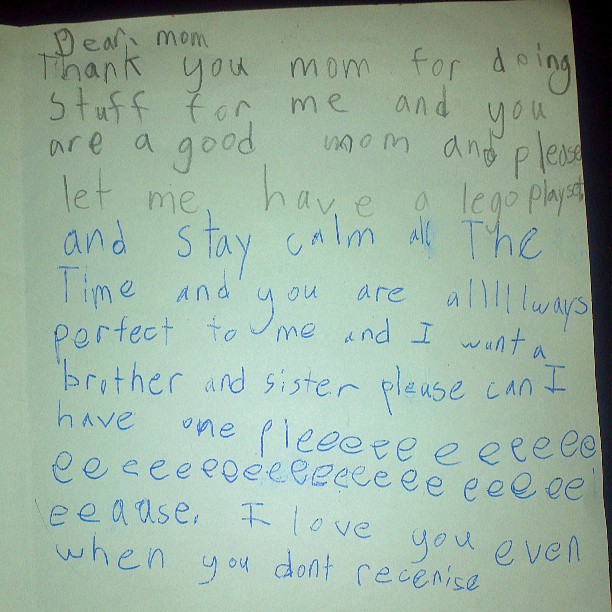 Dear, mom
Thank you mom for doing
stuff for me and you
are a good mom and please
let me have a lego playset
and stay calm all The
Time and you are alllllways
perfect to me and I want a
brother and sister please can I
have one pleeeeee e eeeeee
ee eeeeeeeeeeeeeeee eeeee
eeaause. I love you even
when you dont recenise